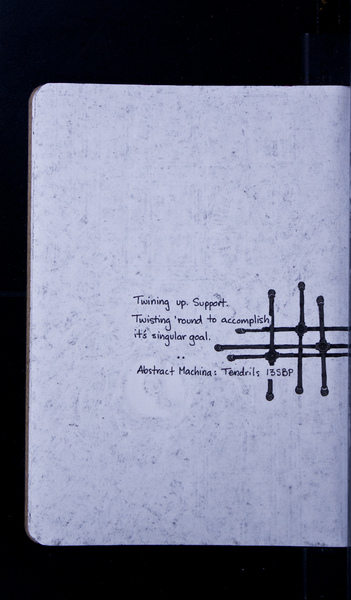 Twining up. Support.
Twisting 'round to accomplish
it's singular goal.
..
Abstract Machina: Tendrils 13SBP